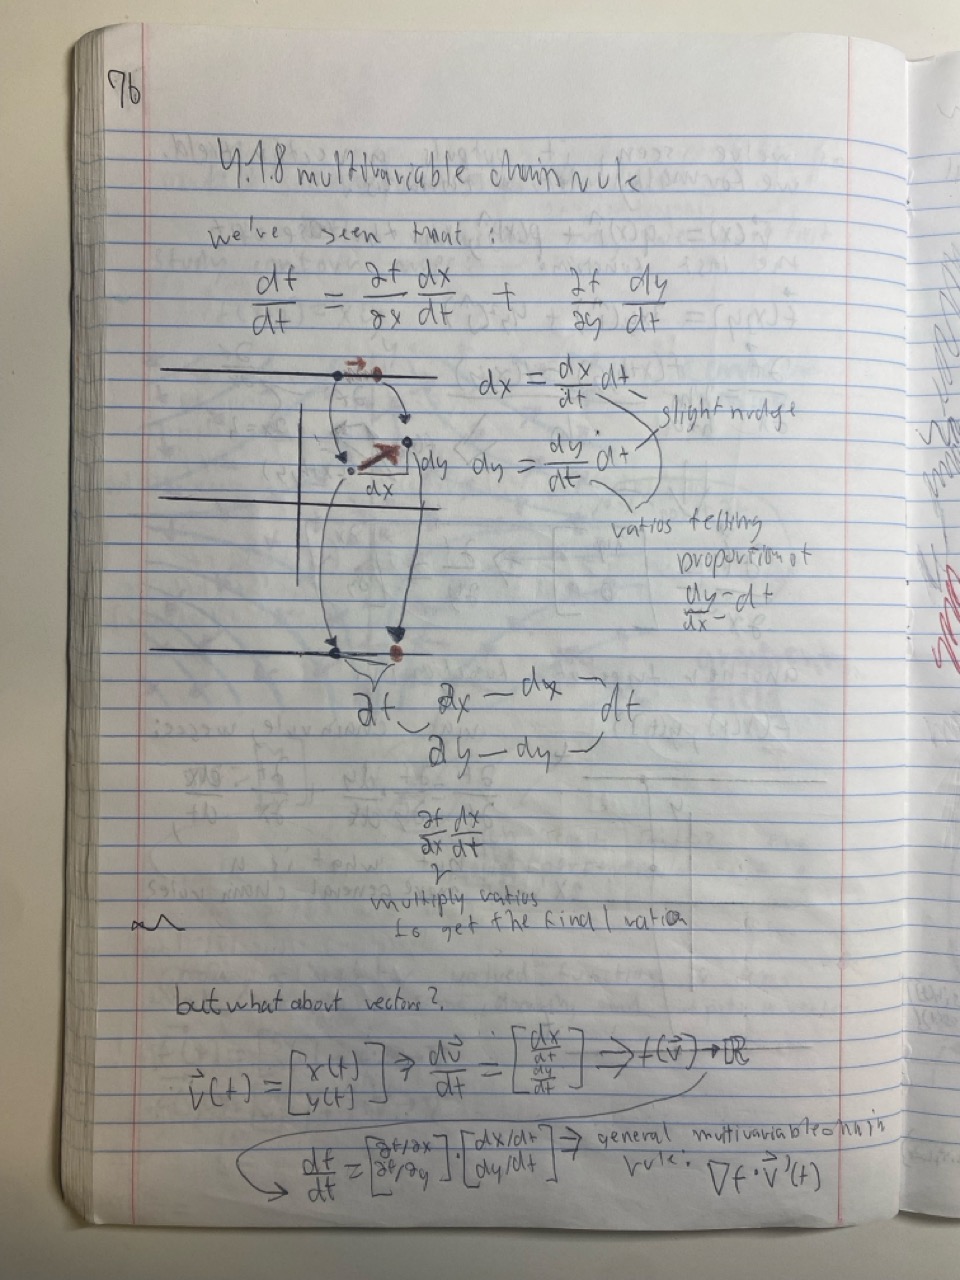 76
4.1.8 multivariable chain rule
we've seen that:
df/dt = ∂f/∂x dx/dt + ∂f/∂y dy/dt
dx = dx/dt dt
slight nudge
dy
dy = dy/dt dt
dx
ratios telling
proportion of
dy/dx - dt
∂f ∂x — dx dt
∂y — dy
∂f/∂x dx/dt
multiply ratios
to get the final ration
but what about vectors?
v⃗(t) = [x(t) y(t)] ⇒ dv⃗/dt = [dx/dt dy/dt] ⇒ f(v⃗) → ℝ
df/dt = [∂f/∂x ∂f/∂y] · [dx/dt dy/dt] ⇒ general multivariable chain
rule: ∇f · v⃗'(t)